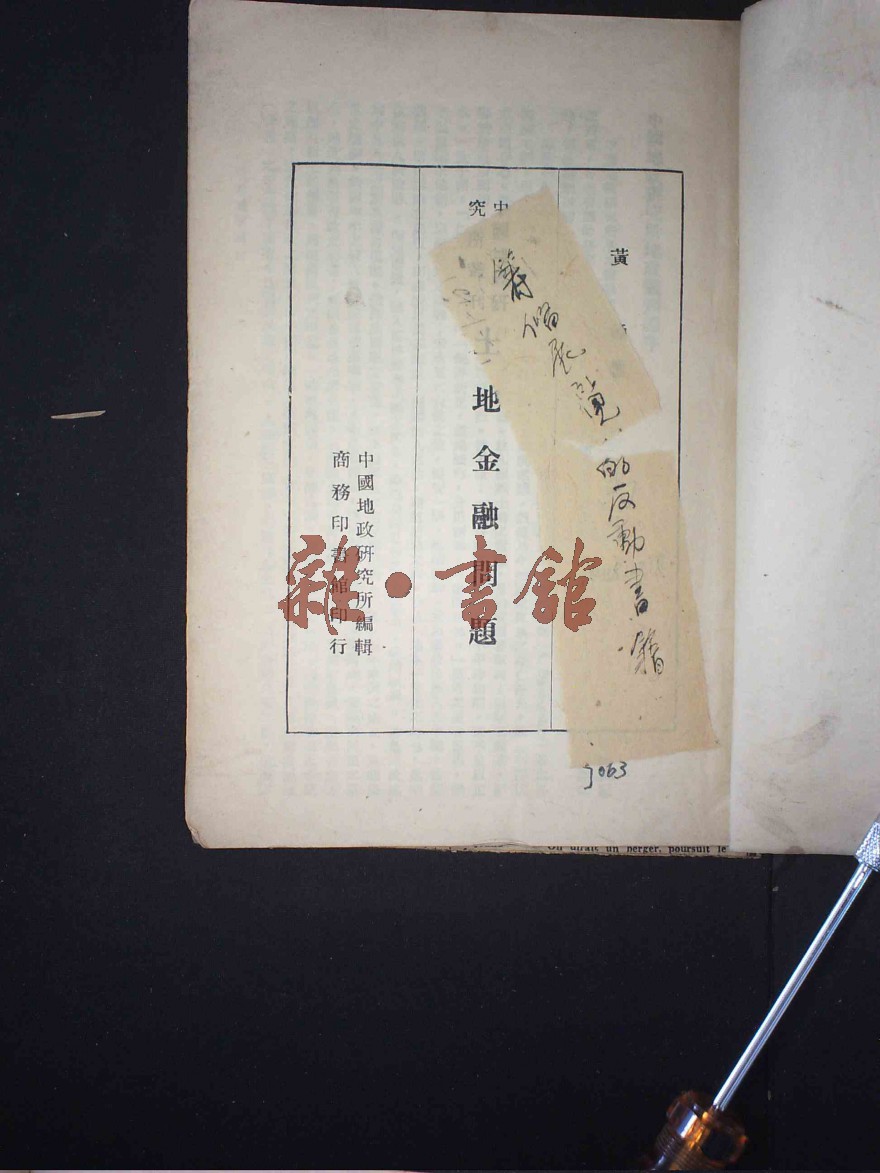 黃
中
究
土地金融問題
中國地政研究所編輯
商務印書館印行
的反動書籍
3063
雜·書館
On dirait un berger, poursuit le